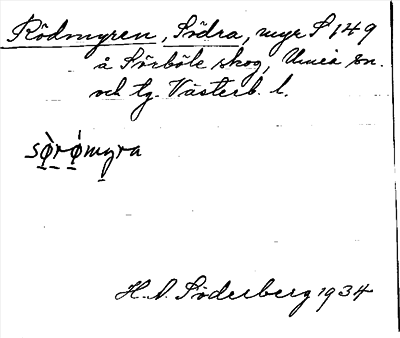 Rödmyren, Södra, myr S 149
å Sörböle skog, Umeå sn.
och tg. Västerb. l.
sø̀rǿmyra
H. A. Söderberg 1934